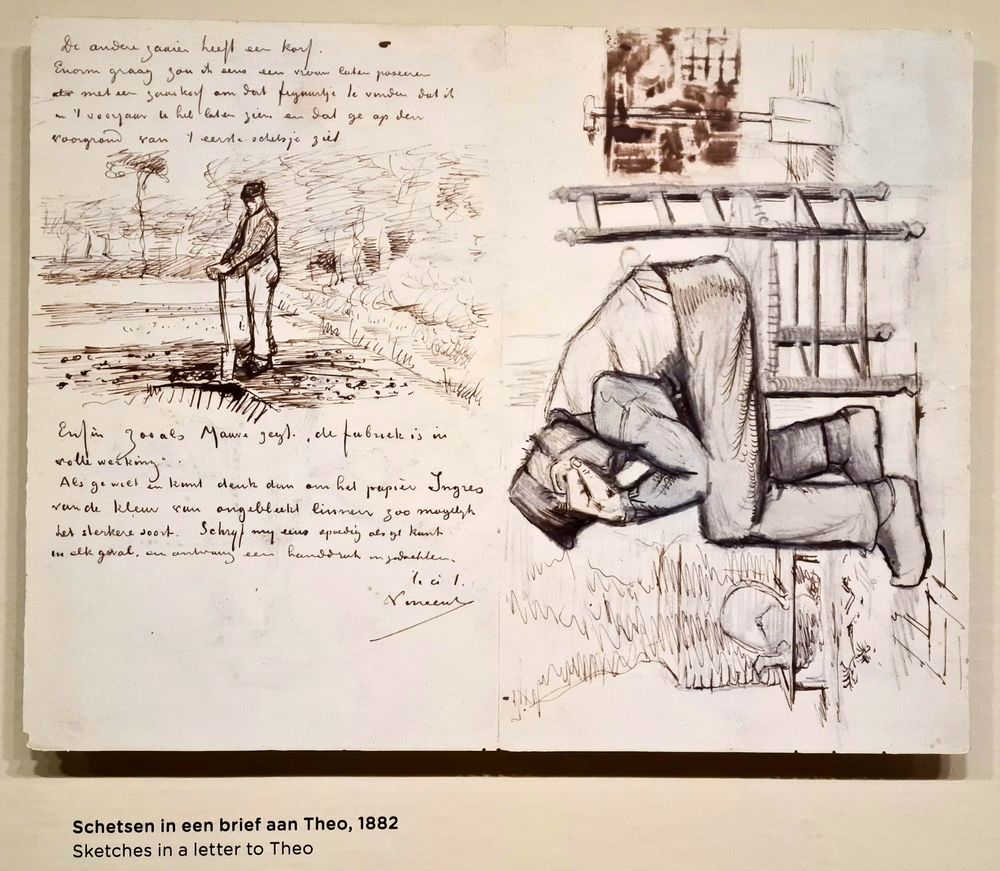 De andere zaaier heeft een korf.
Enorm graag zou ik eens een vrouw laten poseeren
met een zaaikorf om dat figuurtje te vinden dat ik
u 't voorjaar u heb laten zien en dat ge op den
voorgrond van 't eerste schetsje ziet
Enfin zooals Mauve zegt. „de fabriek is in
volle werking".
Als ge wilt en kunt denk dan om het papier Ingres
van de kleur van ongebleekt linnen zoo mogelijk
het sterkere soort. Schryf my eens spoedig als ge kunt
in elk geval, en ontvang een handdruk in gedachten,
t. à t.
Vincent
Schetsen in een brief aan Theo, 1882
Sketches in a letter to Theo